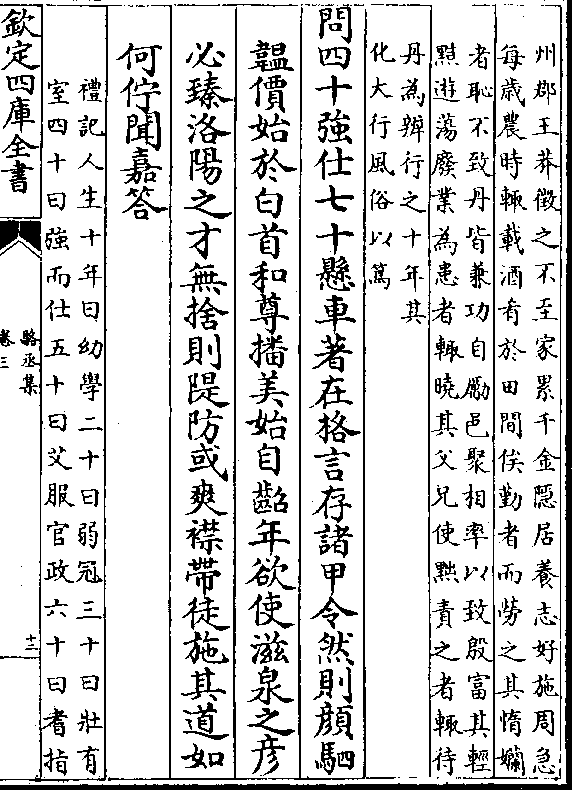 州郡王莽徴之不至家累千金隠居養志好施周急
每歲農時輒載酒肴於田間俟勤者而勞之其惰嬾
者恥不致丹皆兼功自勵邑聚相率以致殷富其輕
黠遊蕩廢業為患者輒曉其父兄使黠責之者輒待
丹為辧行之十年其
化大行風俗以篤
問四十強仕七十懸車著在格言存諸甲令然則顔駟
韞價始於白首和尊播美始自齠年欲使滋泉之彦
必臻洛陽之才無捨則隄防或爽襟帶徒施其道如
何佇聞嘉答
禮記人生十年曰幼學二十曰弱冠三十曰壯有
室四十曰強而仕五十曰艾服官政六十曰耆指
欽定四庫全書
駱丞集
卷三
十三